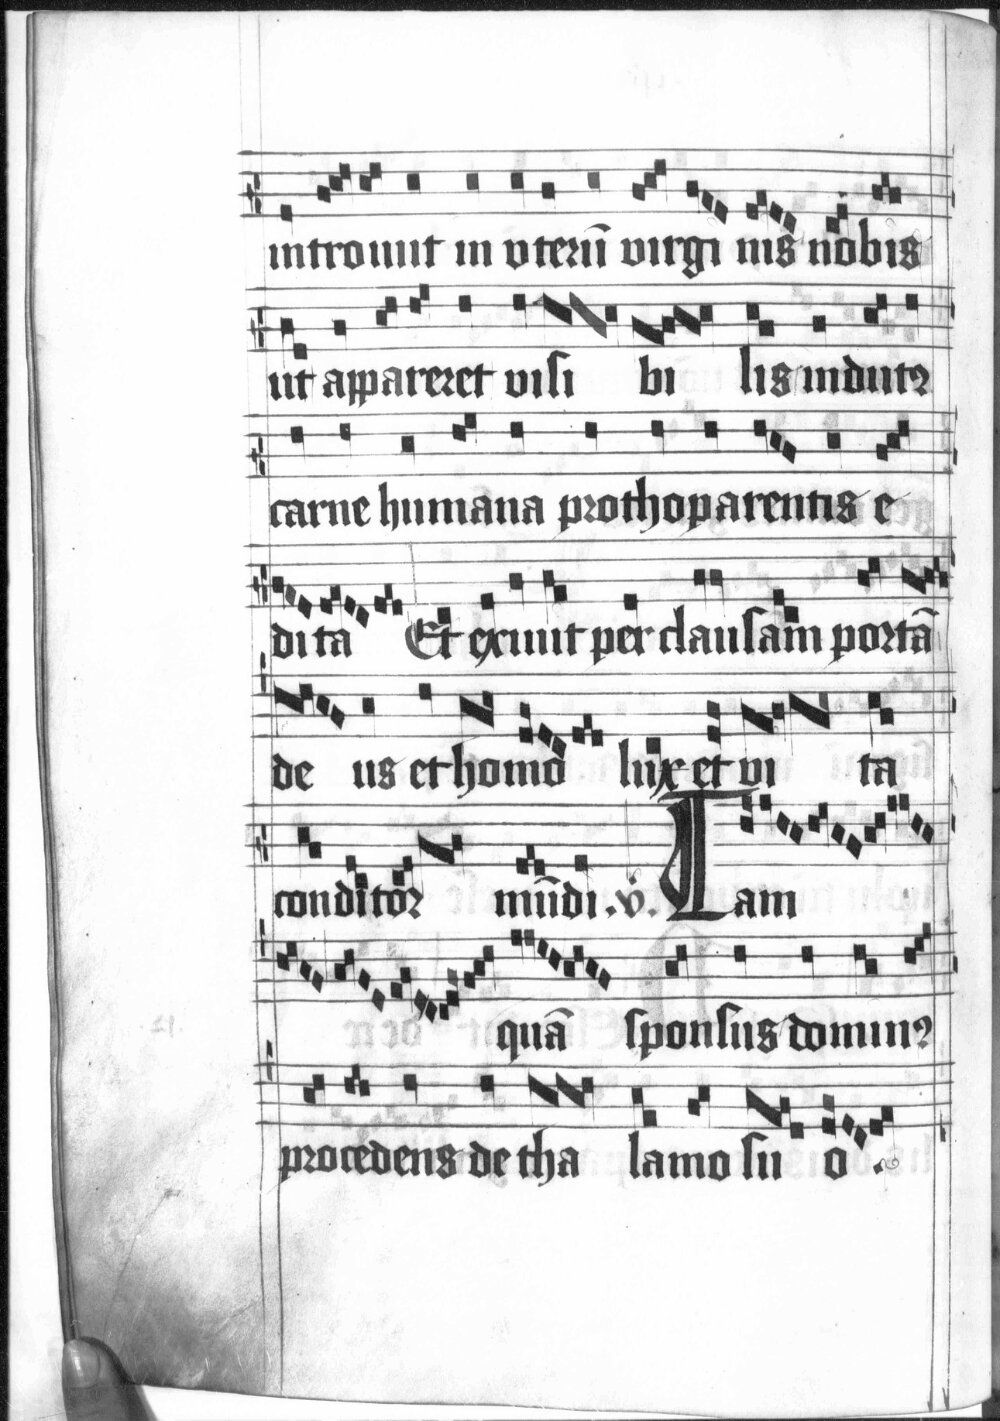 introiuit in vterū virgi nis nobis
ut appareret visi bi lis indutꝰ
carne humana prothoparentis e
dita Et exiuit per clausam portā
de us et homo lux et vi ta
conditor mūdi. v. Tam
quā sponsus dominꝰ
procedens de tha lamo su o .